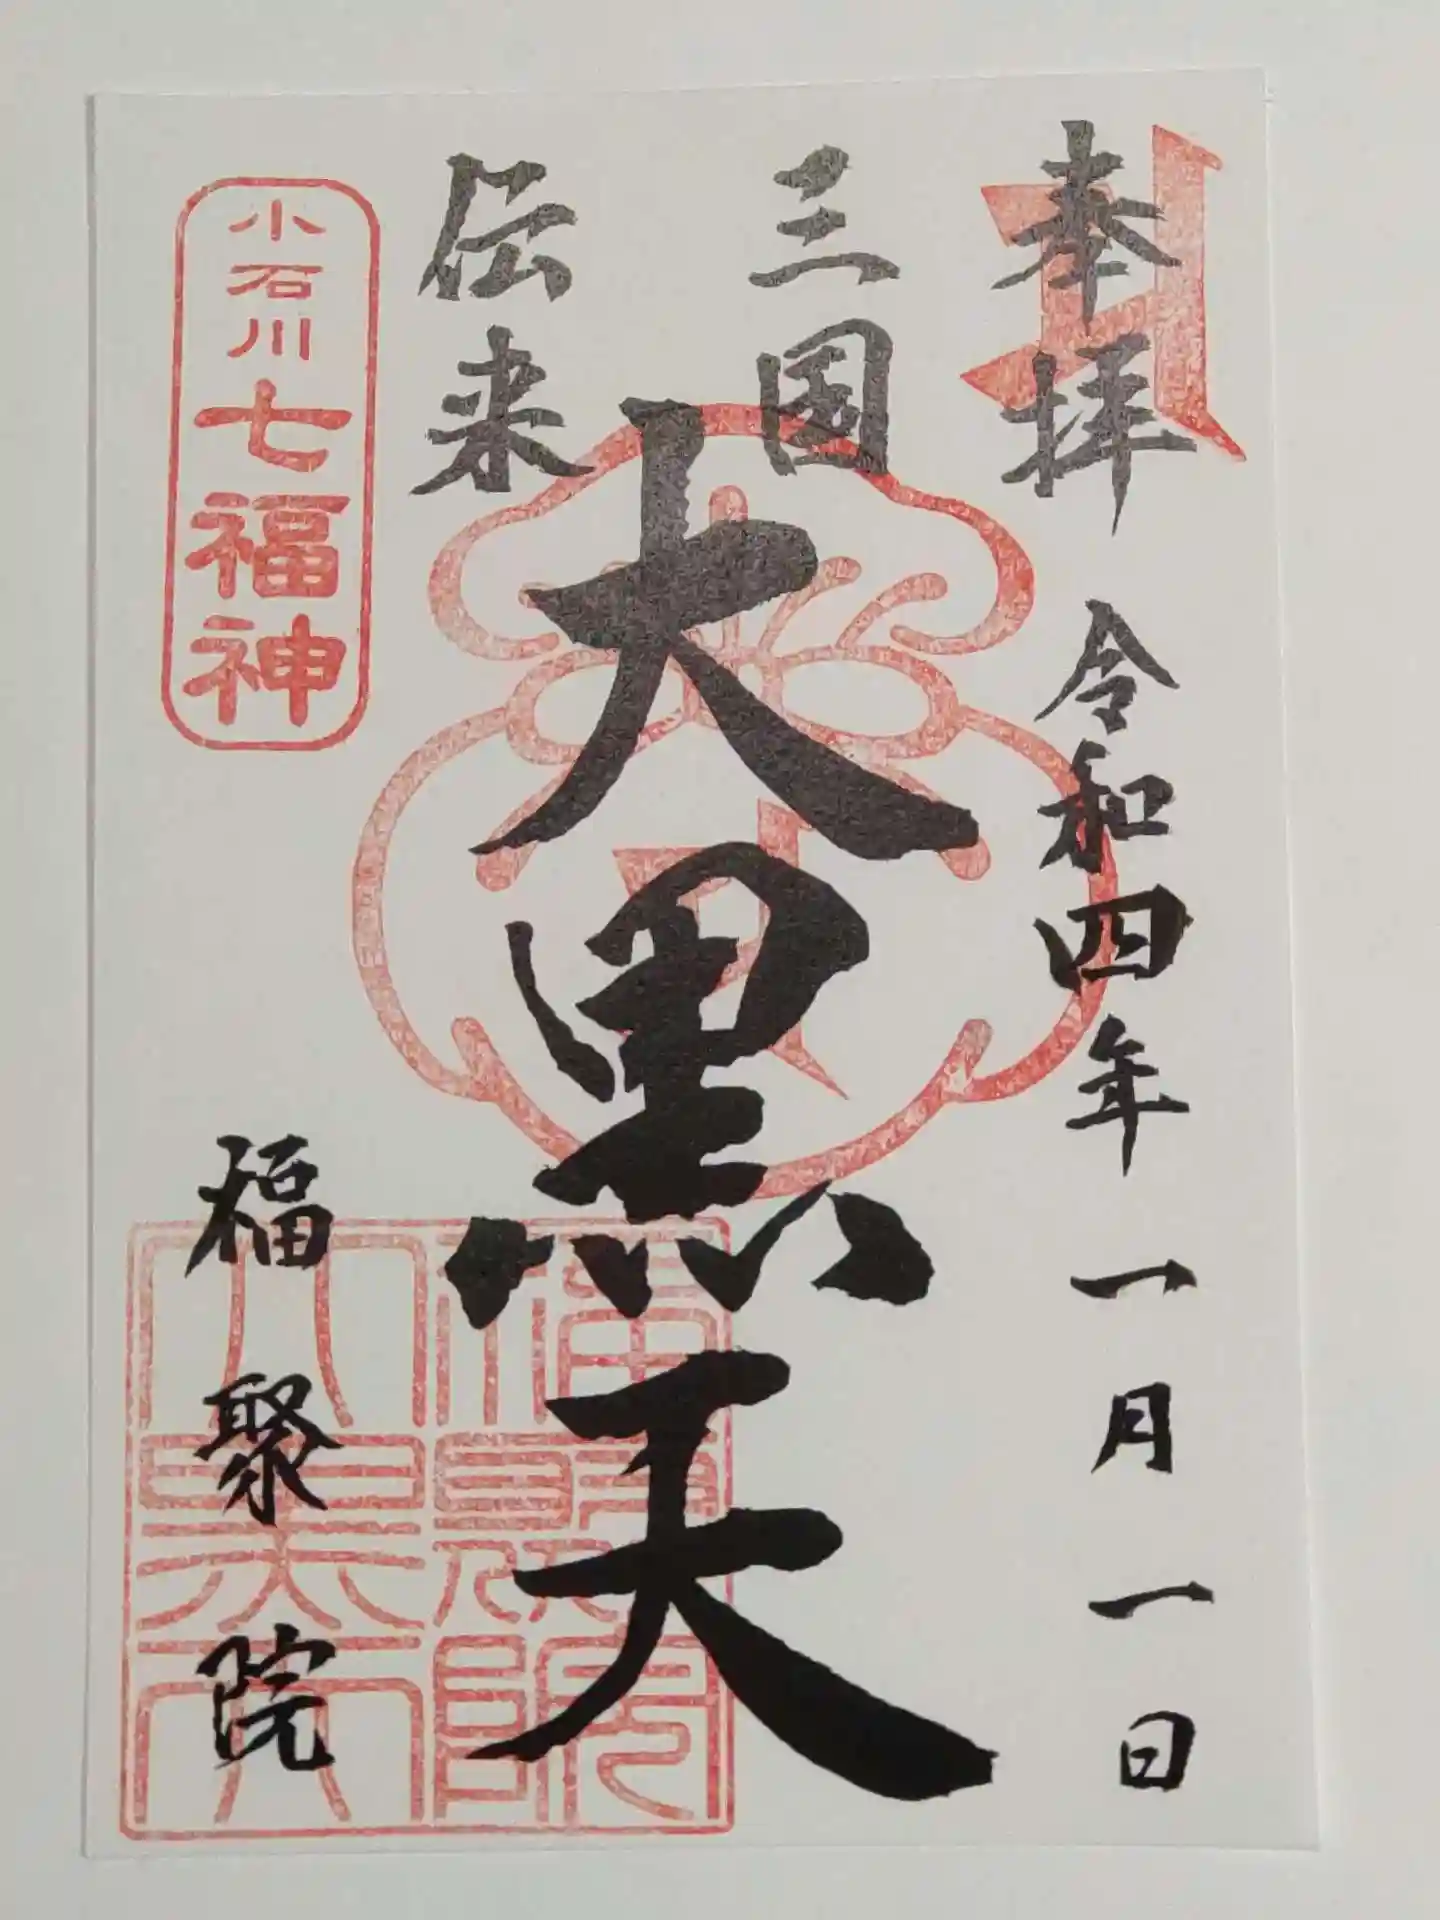 奉拝 令和四年一月一日
三国
伝来
大黒天
小石川七福神
福聚院
福聚院
大黒天